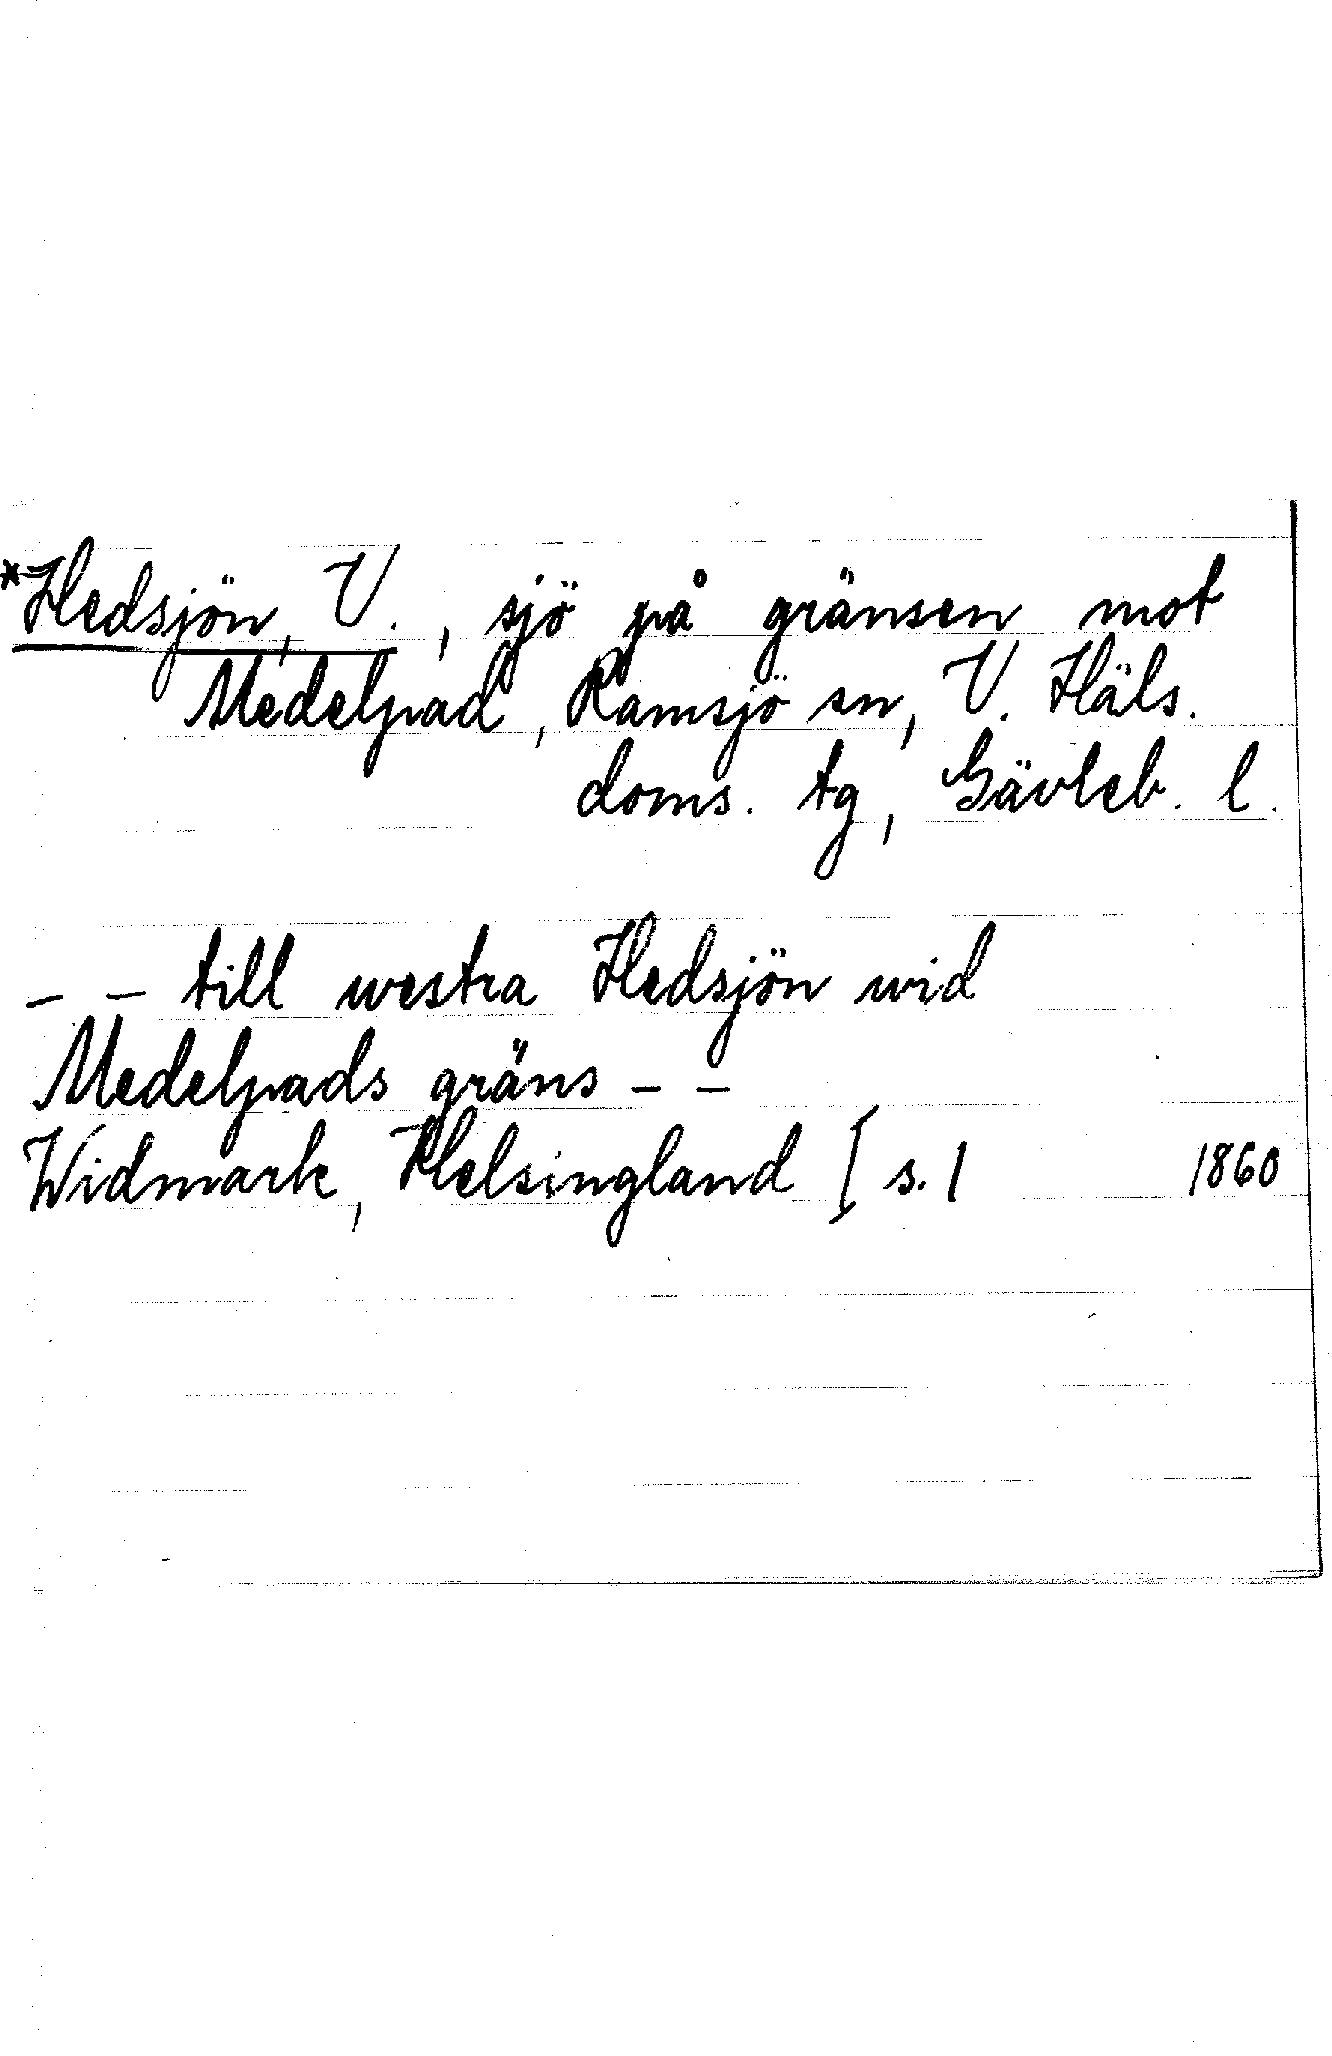 *Hedsjön, V., sjö på gränsen mot
Medelpad, Ramsjö sn, V. Häls.
doms. tg, Gävleb. l.
– – till westra Hedsjön wid
Medelpads gräns – –
Widmark, Helsingland I s. 1 1860